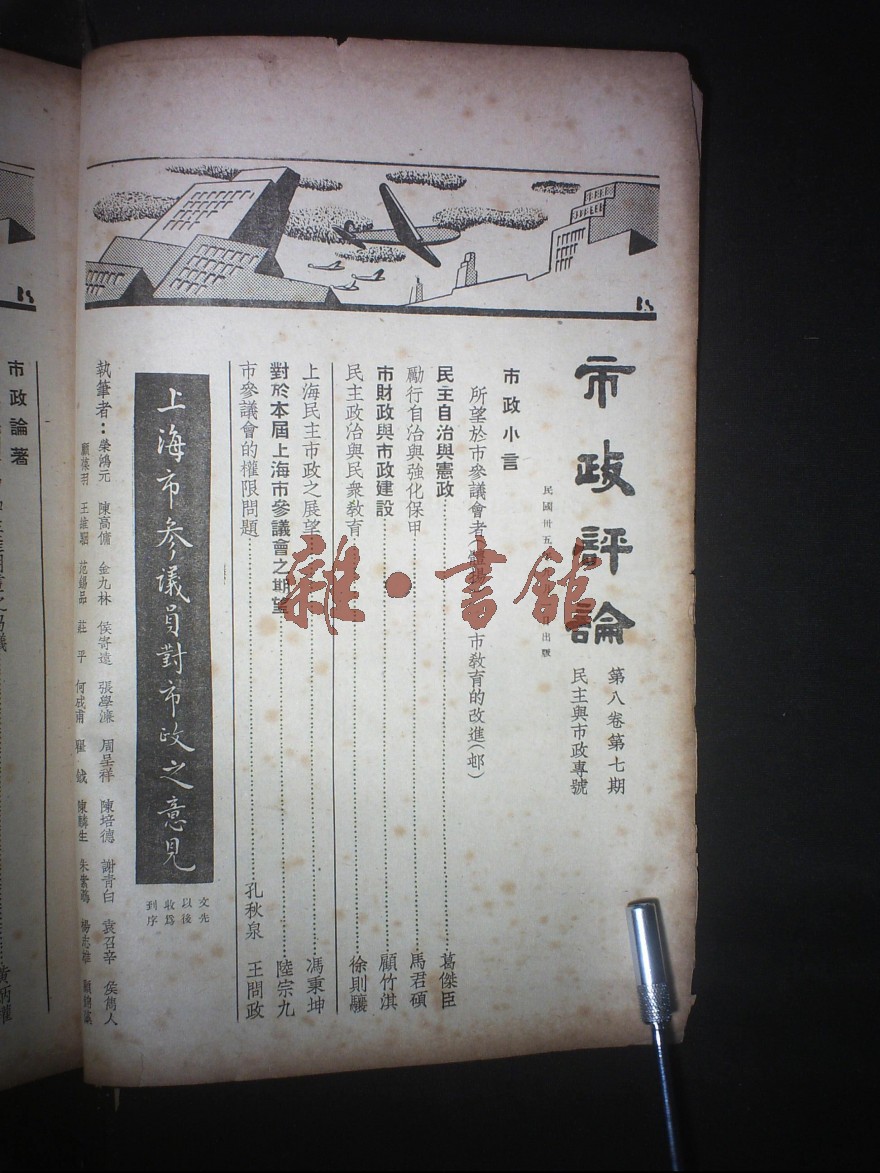 市政評論
第八卷第七期
民主與市政專號
民國卅五年
出版
市政小言
所望於市參議會者
市教育的改進(邨)
民主自治與憲政 葛傑臣
勵行自治與強化保甲 馬君碩
市財政與市政建設 顧竹淇
民主政治與民衆教育 徐則驤
上海民主市政之展望 馮秉坤
對於本屆上海市參議會之期望 陸宗九
市參議會的權限問題 孔秋泉 王問政
上海市參議員對市政之意見
文先
以後
收爲
到序
執筆者：榮鴻元 陳高傭 金九林 侯寄遠 張學濂 周呈祥 陳培德 謝青白 袁召辛 侯雋人
顧葆羽 王維駰 范錫品 莊平 何成甫 瞿鉞 陳麟生 楊志雄
市政論著
雜·書館